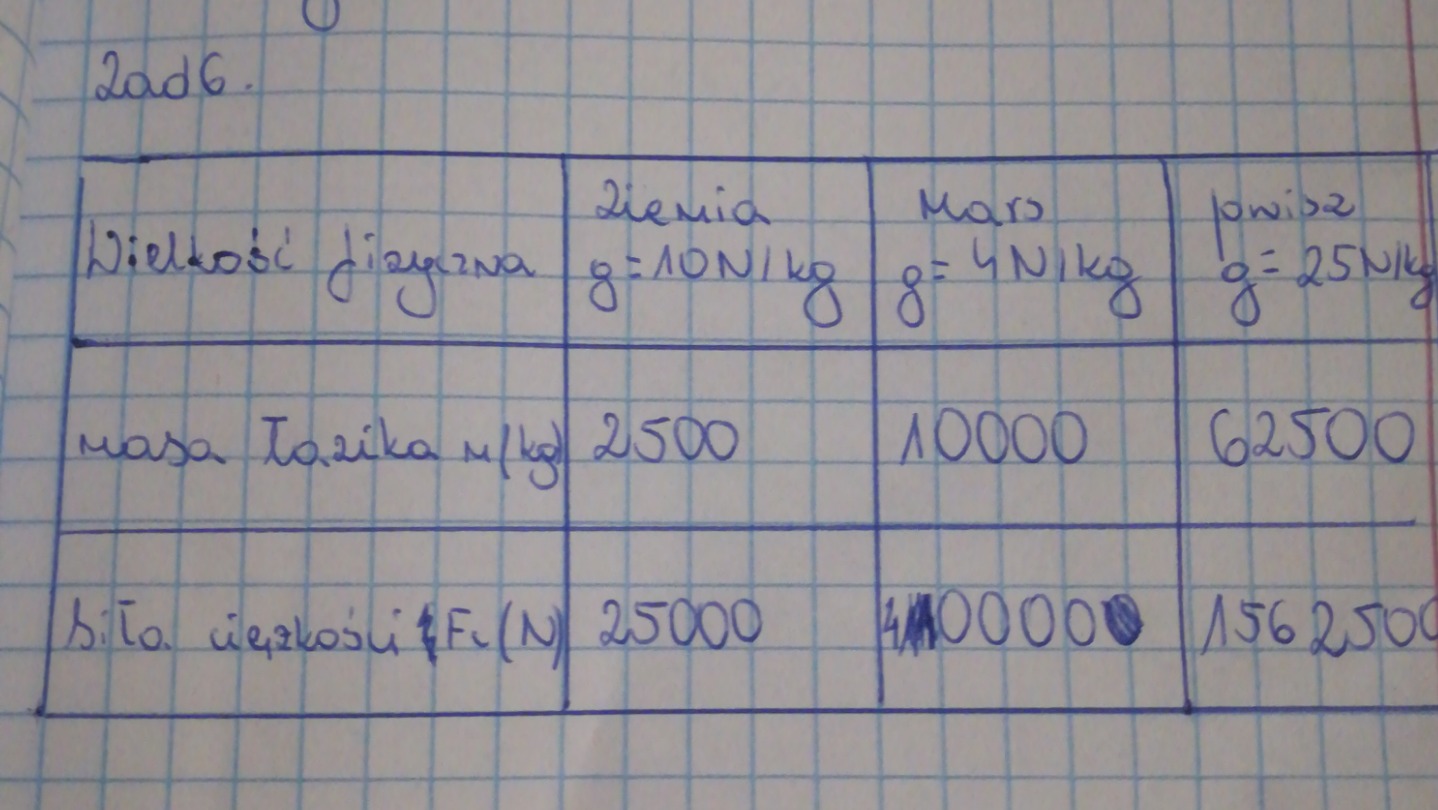 Zad 6.
Wielkość fizyczna
Ziemia
g=10N/kg
Mars
g=4N/kg
Jowisz
g=25N/kg
masa łazika m(kg)
2500
10000
62500
siła ciężkości Fc(N)
25000
40000
1562500